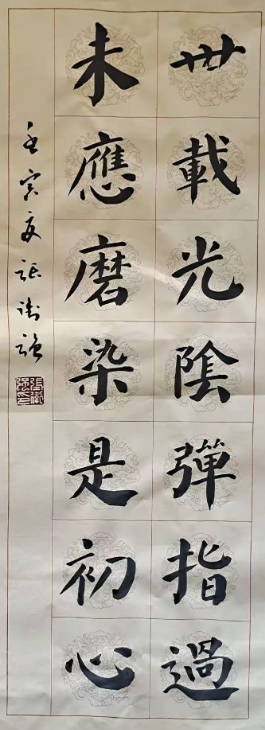 卅載光陰彈指過
未應磨染是初心
壬寅夏